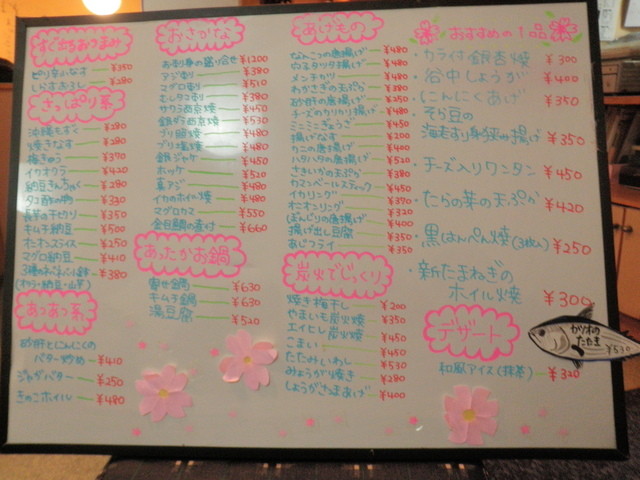 すぐ出るおつまみ
ピリ辛小なす ¥350
しらすおろし ¥280
さっぱり系
沖縄もずく ¥280
焼きなす ¥280
梅きゅう ¥370
イカオクラ ¥420
納豆きんちゃく ¥280
タコ酢の物 ¥330
長芋の千切り ¥350
キムチ納豆 ¥500
オニオンスライス ¥250
マグロ納豆 ¥410
3種のねばねば小鉢 ¥380
(オクラ・納豆・山芋)
あつあつ系
砂肝とにんにくの
バター炒め ¥410
ジャガバター ¥250
きのこホイル ¥480
おさかな
お刺身の盛り合せ ¥1200
アジ刺し ¥380
マグロ刺し ¥510
むしタコ刺し ¥380
サクラ西京焼 ¥450
銀ダラ西京焼 ¥530
ブリ照焼 ¥480
ブリ塩焼 ¥480
銀ジャケ ¥450
ホッケ ¥520
真アジ ¥480
イカのホイル焼 ¥480
マグロカマ ¥550
金目鯛の煮付 ¥660
あったかお鍋
寄せ鍋 ¥630
キムチ鍋 ¥630
湯豆腐 ¥520
あげもの
なんこつの唐揚げ ¥480
メンチカツ ¥480
わかさぎの天ぷら ¥380
砂肝の唐揚げ ¥250
チーズのカリカリ揚げ ¥480
ミニミニぎょうざ ¥450
揚げなす
カニの唐揚げ
ハタハタの唐揚げ
さきいかの天ぷら
カマンベールスティック ¥450
イカリング
オニオンリング
ぼんじりの唐揚げ
揚げ出し豆腐
あじフライ ¥350
炭火でじっくり
焼き梅干し ¥200
やまいも炭火焼 ¥350
エイヒレ炭火焼 ¥450
こまい ¥450
たたみいわし ¥530
みょうが焼き ¥280
しょうがさつまあげ ¥400
おすすめの1品
・カラ付銀杏焼 ¥300
・谷中しょうが ¥400
・にんにくあげ ¥350
・そら豆の
海老すり身挟み揚げ ¥350
・チーズ入りワンタン ¥450
・たらの芽の天ぷら ¥420
・黒はんぺん焼(3枚入) ¥250
・新たまねぎの
ホイル焼 ¥300
デザート
和風アイス(抹茶) ¥320
カツオの
たたき
¥530